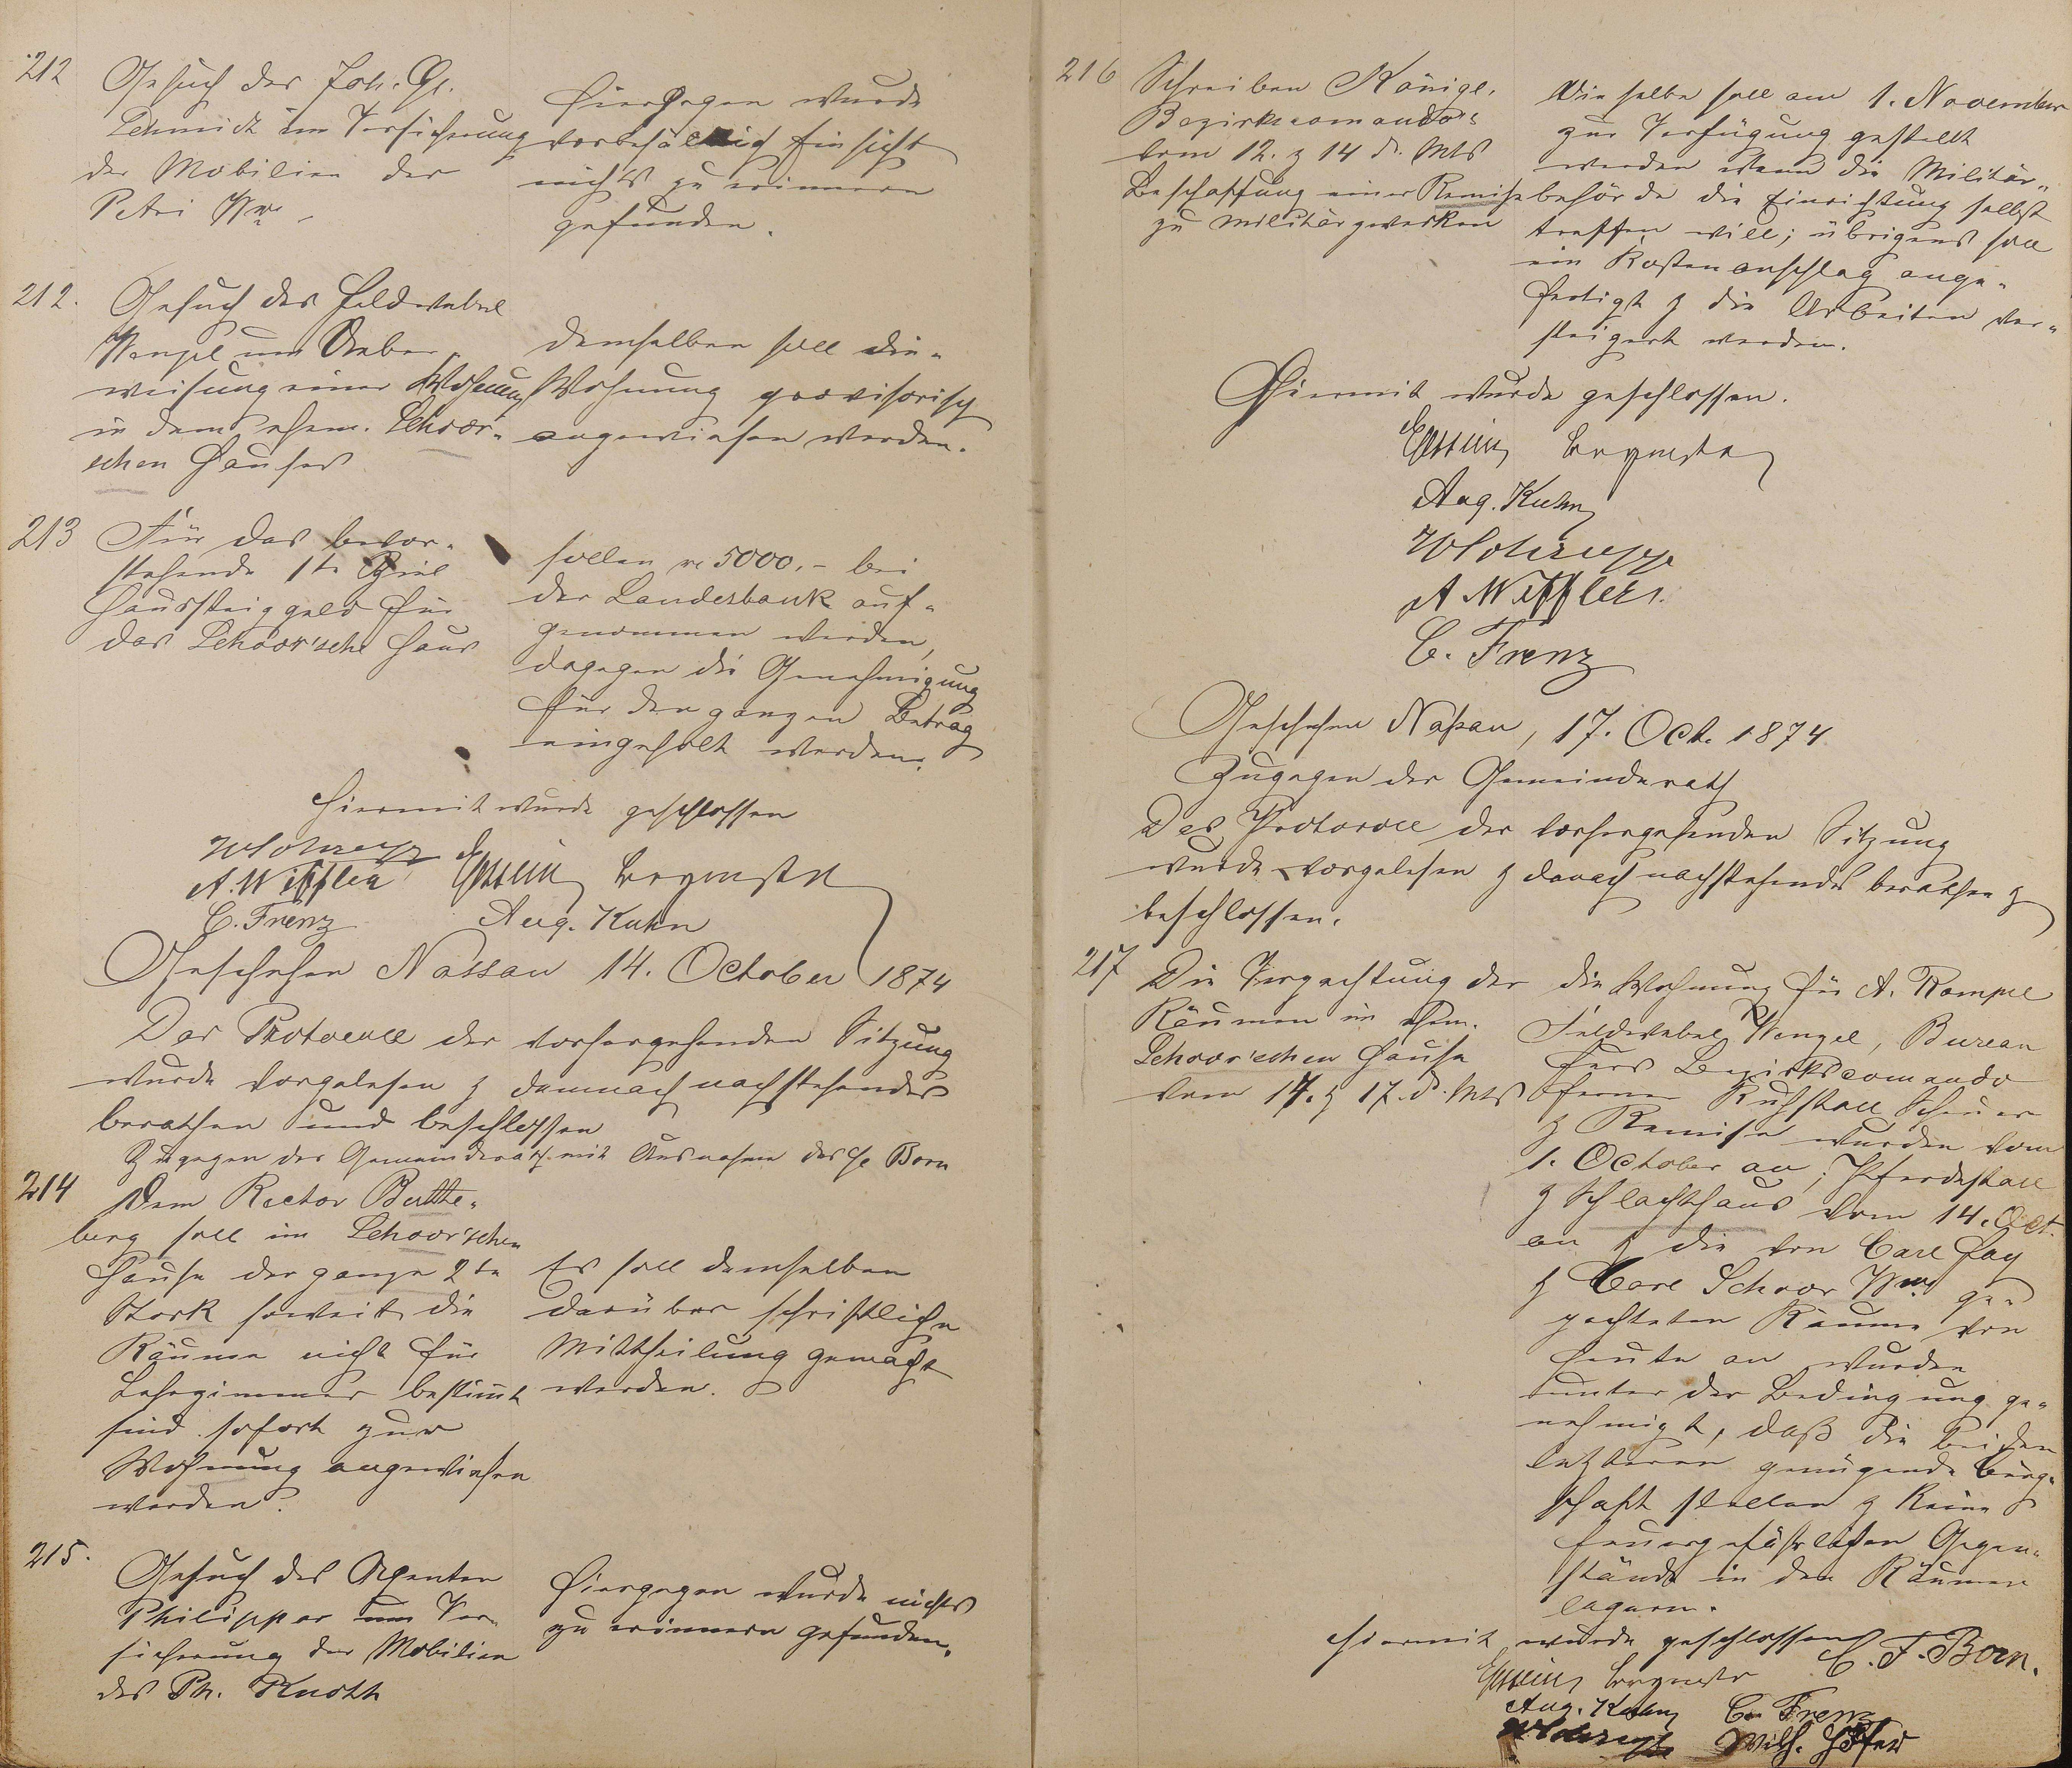 212
Gesuch des Joh. Gg.
Schmidt um Versicherung
der Mobilien der
Petri Wwe
Hiergegen wurde
vorbehältlich Einsicht
nichts zu erinnern
gefunden.
212.
Gesuch des Feldwebel
Wenzel um Ueber-
weisung einer Wohnung
in dem ehem. Schoor-
schen Hauses
Demselben soll die
Wohnung provisorisch
angewiesen werden.
213
Für das bevor-
stehende 1te Ziel
Haussteiggeld für
das Schoor'sche Haus
sollen 5000.- bei
der Landesbank auf-
genommen werden,
dagegen die Genehmigung
für den ganzen Betrag
eingeholt werden.
Hiermit wurde geschlossen
A. Wiffler
C. Frenz
Aug. Kuhn
Geschehen Nassau 14. October 1874
Das Protocoll der vorhergehenden Sitzung
wurde vorgelesen & demnach nachstehendes
berathen und beschlossen
Zugegen der Gemeinderath mit Ausnahme des H. Born
214
Dem Rector Butte-
berg soll im Schoor'schen
Hause der ganze 2te
Stock soweit die
Räume nicht für
Lehrzimmer bestimt
sind sofort zur
Wohnung angewiesen
werden.
Es soll demselben
darüber schriftliche
Mittheilung gemacht
werden.
215.
Gesuch des Agenten
Philippar um Ver-
sicherung der Mobilien
des Ph. Knoth
Hiergegen wurde nichts
zu erinnern gefunden.
216
Schreiben Königl.
Bezirkscomando's
vom 12. & 14 d. Mts
Beschaffung einer Remise
zu Militärzwecken
Dieselbe soll am 1. November
zur Verfügung gestellt
werden wenn die Militär-
behörde die Einrichtung selbst
treffen will; übrigens soll
ein Kostenanschlag ange-
fertigt & die Arbeiten ver-
steigert werden.
Hiermit wurde geschlossen.
Aug. Kuhn
A. Wiffler
C. Frenz
Geschehen Naßau, 17. Oct. 1874
Zugegen der Gemeinderath
Das Protocoll der vorhergehenden Sitzung
wurde vorgelesen & danach nachstehendes berathen &
beschlossen.
217
Die Verpachtung der
Räumen im ehem.
Schoor'schen Hause
vom 14. & 17. d. Mts
die Wohnung für A. Rompel
Feldwebel Wenzel, Bureau
fürs Bezirkscomando
ferner Kuhstall Scheuer
& Remise wurden vom
1. October an; Pferdestall
& Schlachthaus vom 14. Oct.
an & die von Carl Fay
& Carl Schoor Wwe ge-
pachteten Räume von
heute an wurden
unter der Bedingung ge-
nehmigt, daß die beiden
letzteren genügende Bürg-
schaft stellen & keine
feuergefährlichen Gegen-
stände in den Räumen
lagern.
Hiermit wurde geschlossen
C. F. Born.
Aug. Kuhn C. Frenz
Wilh. Höfer